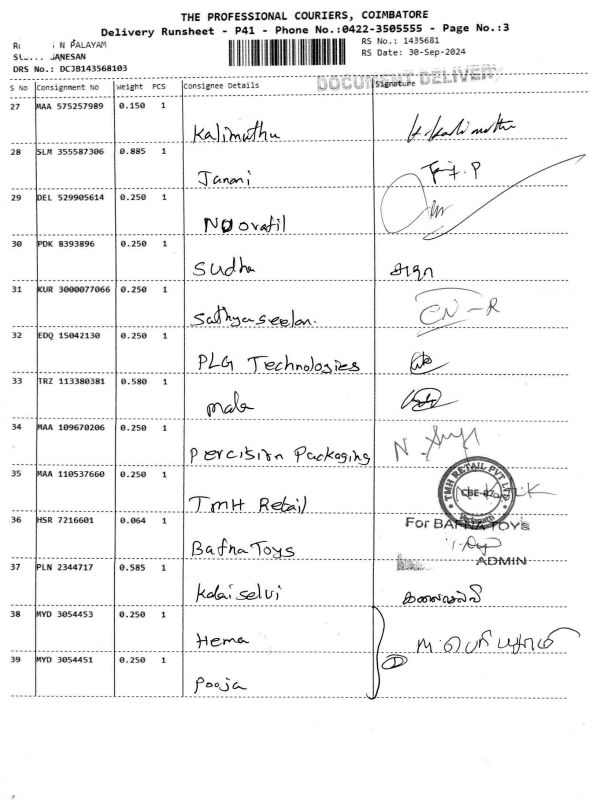 THE PROFESSIONAL COURIERS, COIMBATORE
Delivery Runsheet - P41 - Phone No.:0422-3505555 - Page No.:3
N PALAYAM
RS No.: 1435681
GANESAN
RS Date: 30-Sep-2024
DRS No.: DCJB143568103
DOCUMENT DELIVER
S No Consignment No Weight PCS Consignee Details Signature
27 MAA 575257989 0.150 1
Kalimuthu
28 SLM 355587306 0.885 1
Janani
29 DEL 529905614 0.250 1
30 PDK 8393896 0.250 1
Sudha சுதா
31 KUR 3000077066 0.250 1
Sathyaseelan. CN-R
32 EDQ 15042130 0.250 1
PLG Technologies
33 TRZ 113380381 0.580 1
mala
34 MAA 109670206 0.250 1
Percision Packaging
35 MAA 110537660 0.250 1
TMH RETAIL PVT LTD
TMH Retail
36 HSR 7216601 0.064 1
For BAFNA TOYS
Bafna Toys
ADMIN
37 PLN 2344717 0.585 1
Kalai selvi கலைசெல்வி
38 MYD 3054453 0.250 1
Hema
39 MYD 3054451 0.250 1
Pooja